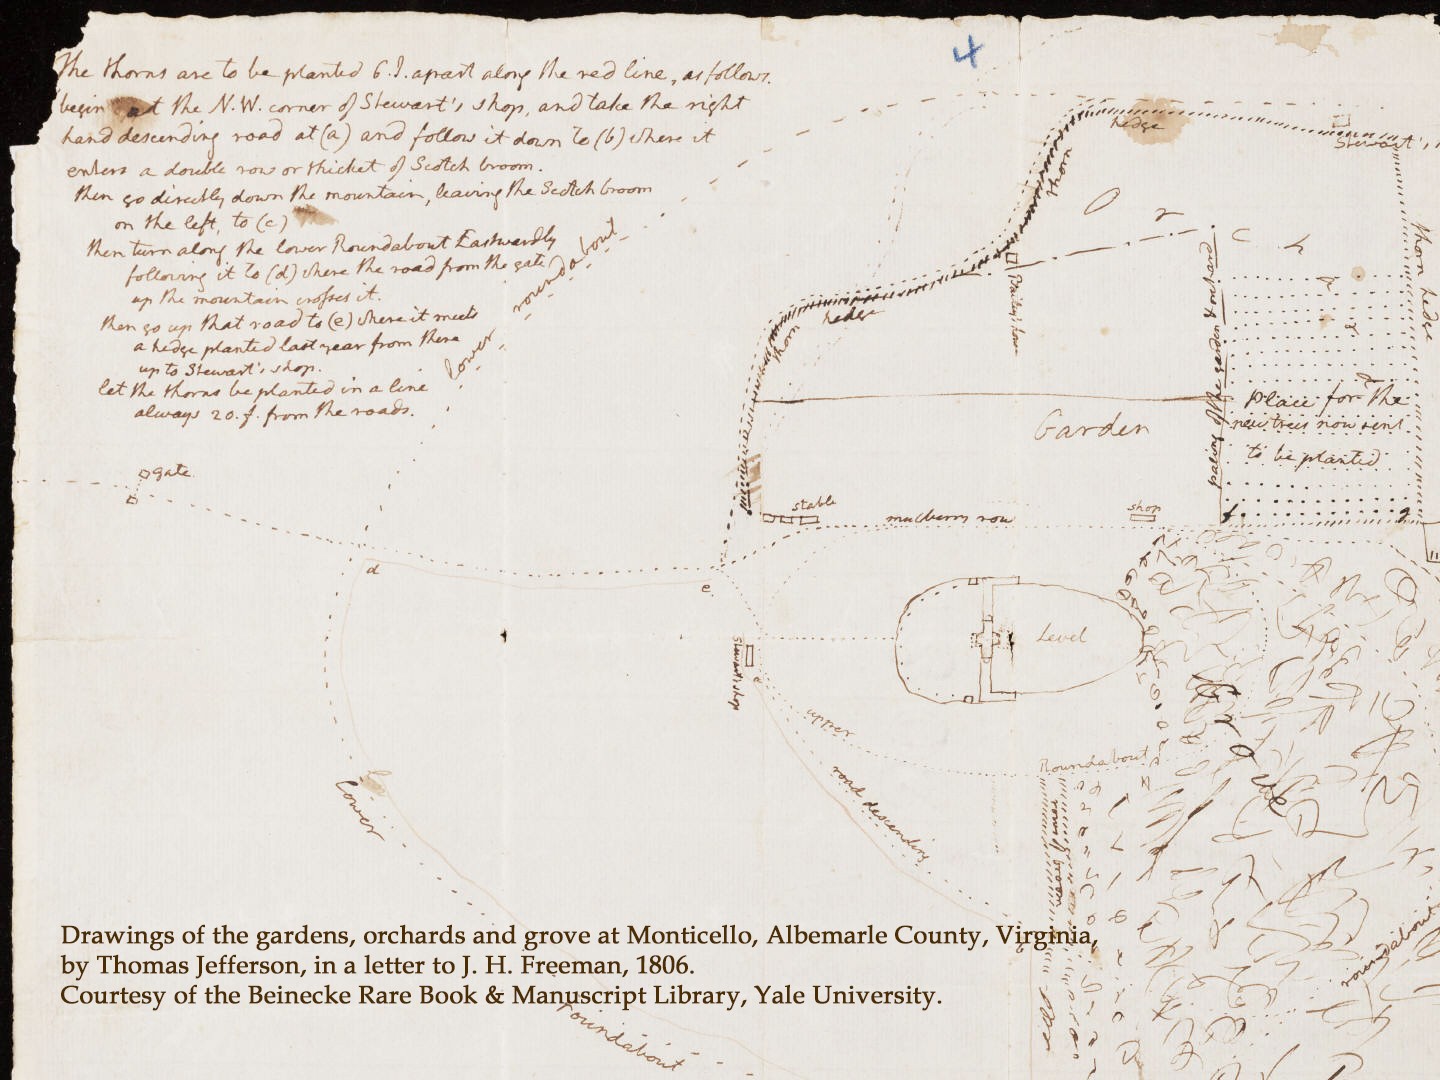 The thorns are to be planted 6.I. apart along the red line, as follows.
begin at the N.W. corner of Stewart's shop, and take the right
hand descending road at (a) and follow it down to (b) where it
enters a double row or thicket of Scotch broom.
then go directly down the mountain, leaving the Scotch broom
on the left, to (c)
then turn along the lower Roundabout Eastwardly
following it to (d) where the road from the gate
up the mountain crosses it.
then go up that road to (e) where it meets
a hedge planted last year from there
up to Stewart's shop.
let the thorns be planted in a line
always 20.f. from the roads.
4
hedge
thorn
Stewart's
Or
ch
thorn hedge
lower roundabout
thorn
hedge
Bailey's
paling of the garden & orchard
Place for the
new trees now sent
to be planted
Garden
gate
stable
mulberry row
shop
f
g
d
e
Stewart's shop
a
Level
upper
Roundabout
road descending
lower
roundabout
b
roundabout
Drawings of the gardens, orchards and grove at Monticello, Albemarle County, Virginia,
by Thomas Jefferson, in a letter to J. H. Freeman, 1806.
Courtesy of the Beinecke Rare Book & Manuscript Library, Yale University.